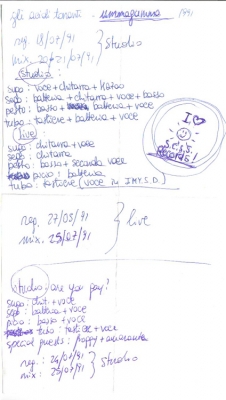 gli avidi tonanti - ummagamma 1991
reg. 18/07/91
mix. 20-21/07/91 } studio
(studio):
sugo: voce + chitarra + kazoo
sego: batteria + chitarra + voce + basso
pesto: basso + batteria + voce
tubo: tastiere + batteria + voce
(live):
sugo: chitarra + voce
sego: chitarra
pesto: basso + seconda voce
picio: batteria
tubo: tastiere (voce in I.M.Y.S.D.)
I ♡
records!
reg. 27/05/91
mix. 25/07/91 } live
studio: are you gay?
sugo: chit. + voce
sego: batteria + voce
picio: basso + voce
tubo: tastiere + voce
special guests: poppy +
reg: 24/07/91
mix: 25/07/91 } studio